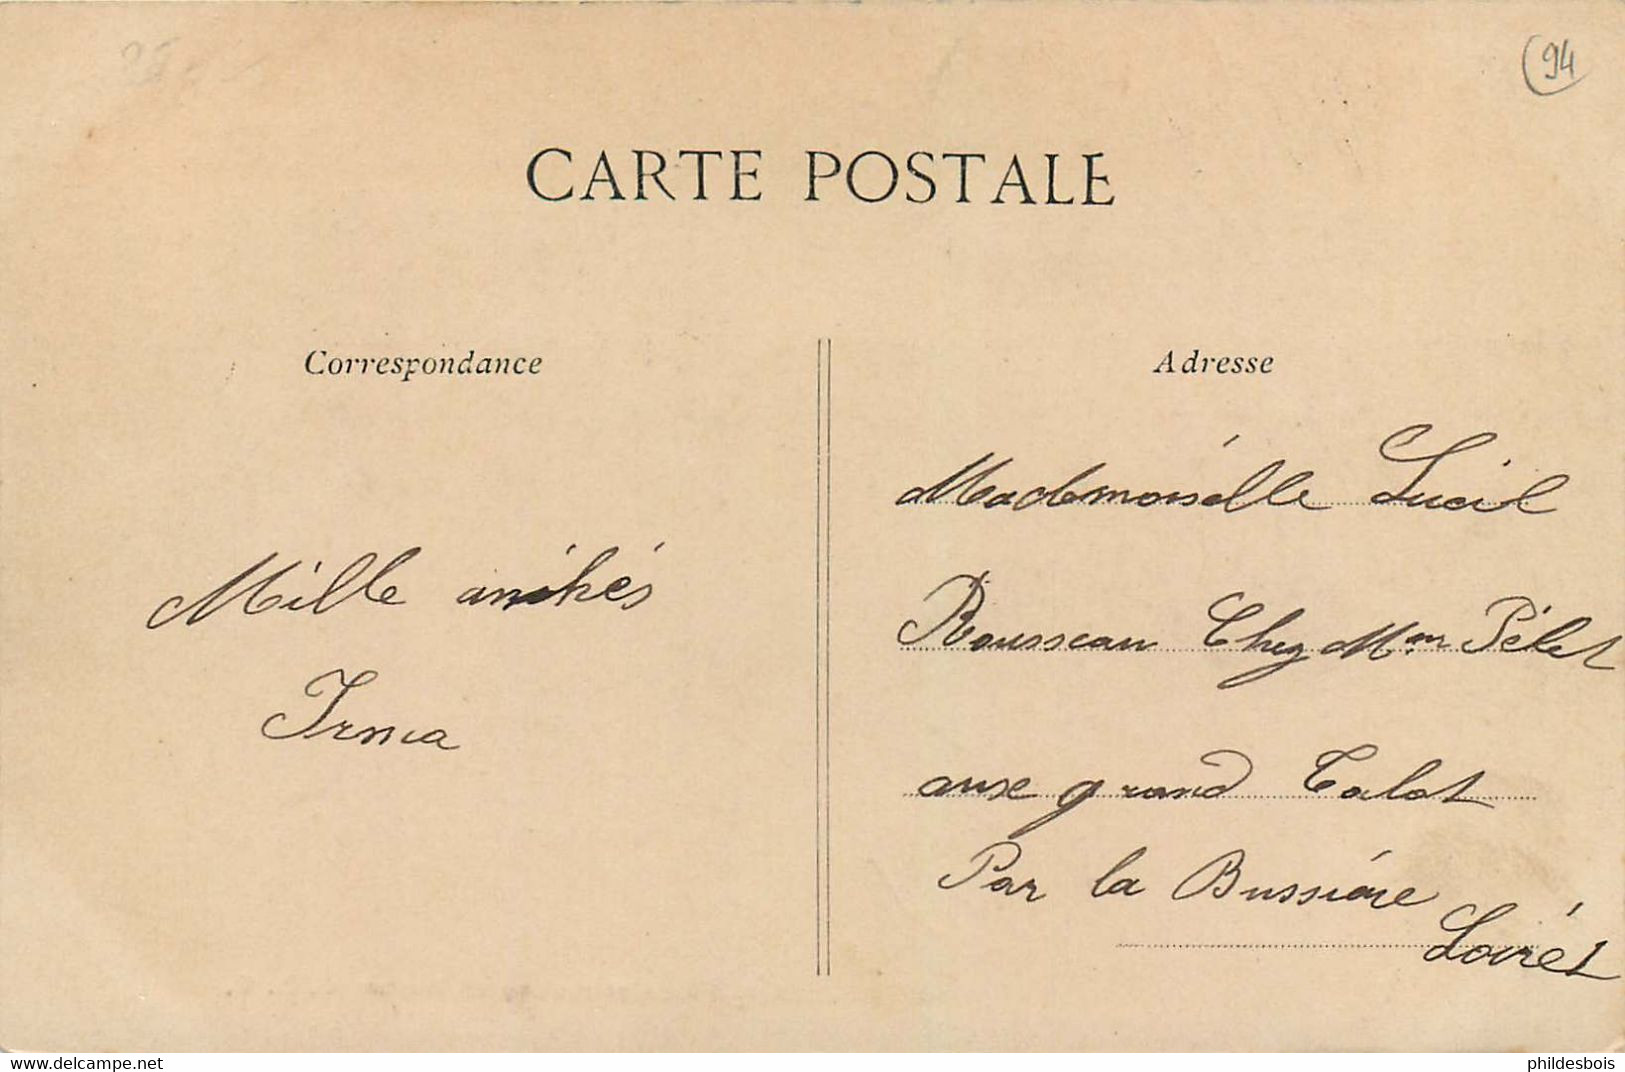 94
CARTE POSTALE
Correspondance
Mille amitiés
Irma
Adresse
Mademoisélle Lucil
Rousseau Chez Mm Pélet
aux grand Talot
Par la Bussiére
Loirét
www.delcampe.net
phildesbois